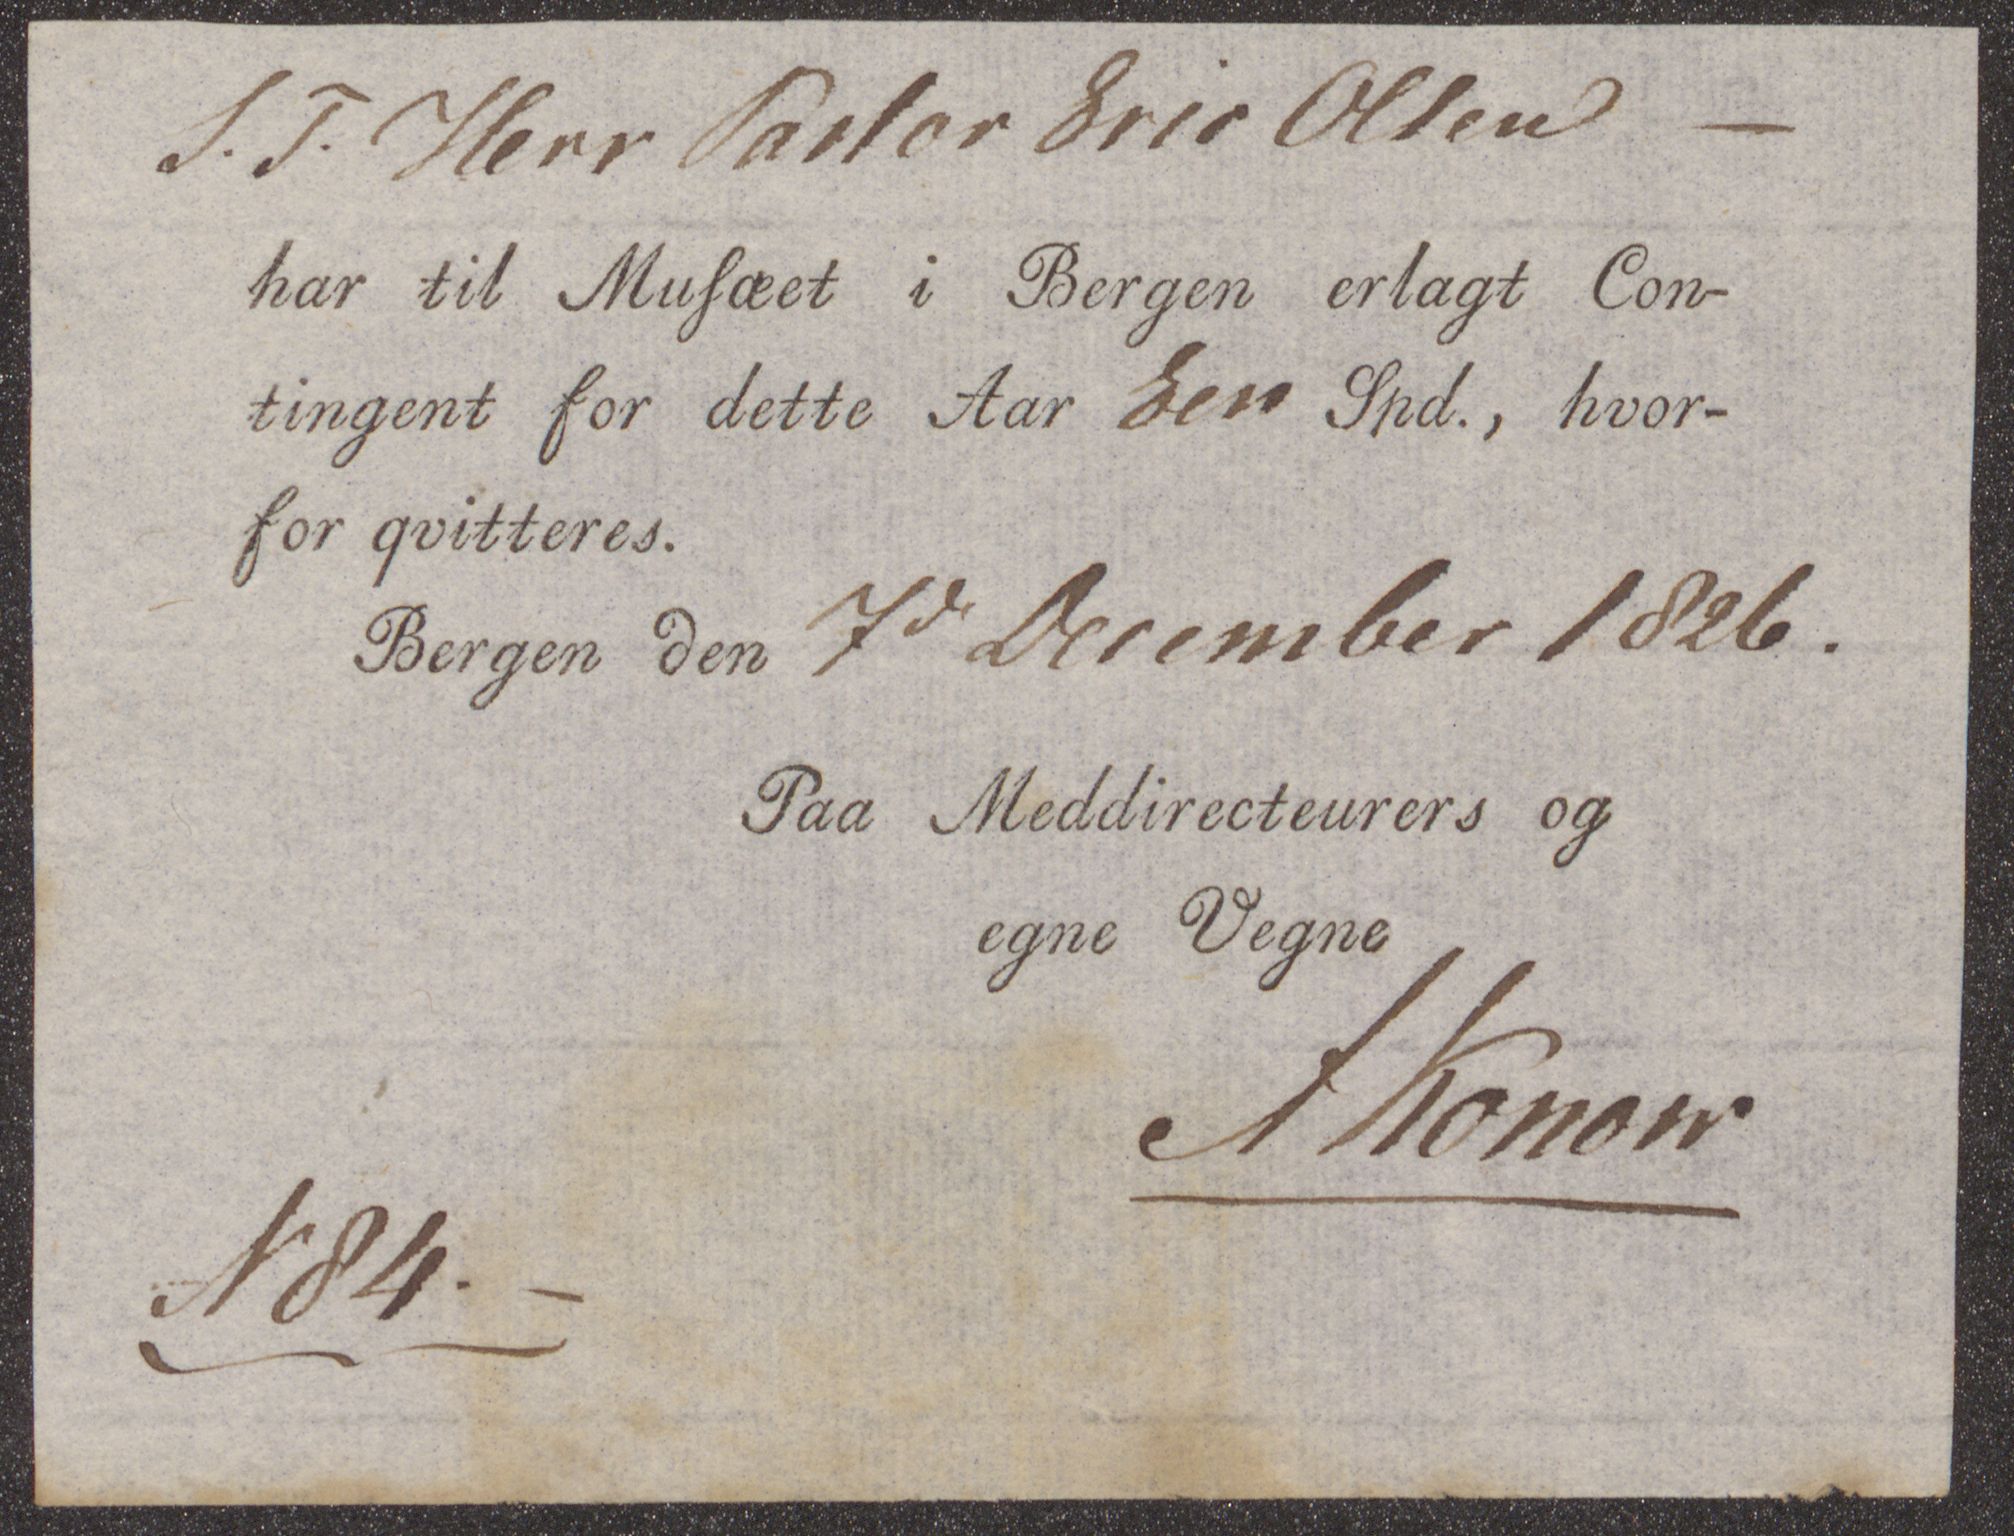 S. T. Herr Pastor Eric Olsen —
har til Muſæet i Bergen erlagt Con-
tingent for dette Aar Een Spd., hvor-
for qvitteres.
Bergen den 7de December 1826.
Paa Meddirecteurers og
egne Vegne
A Konow
N 84. —